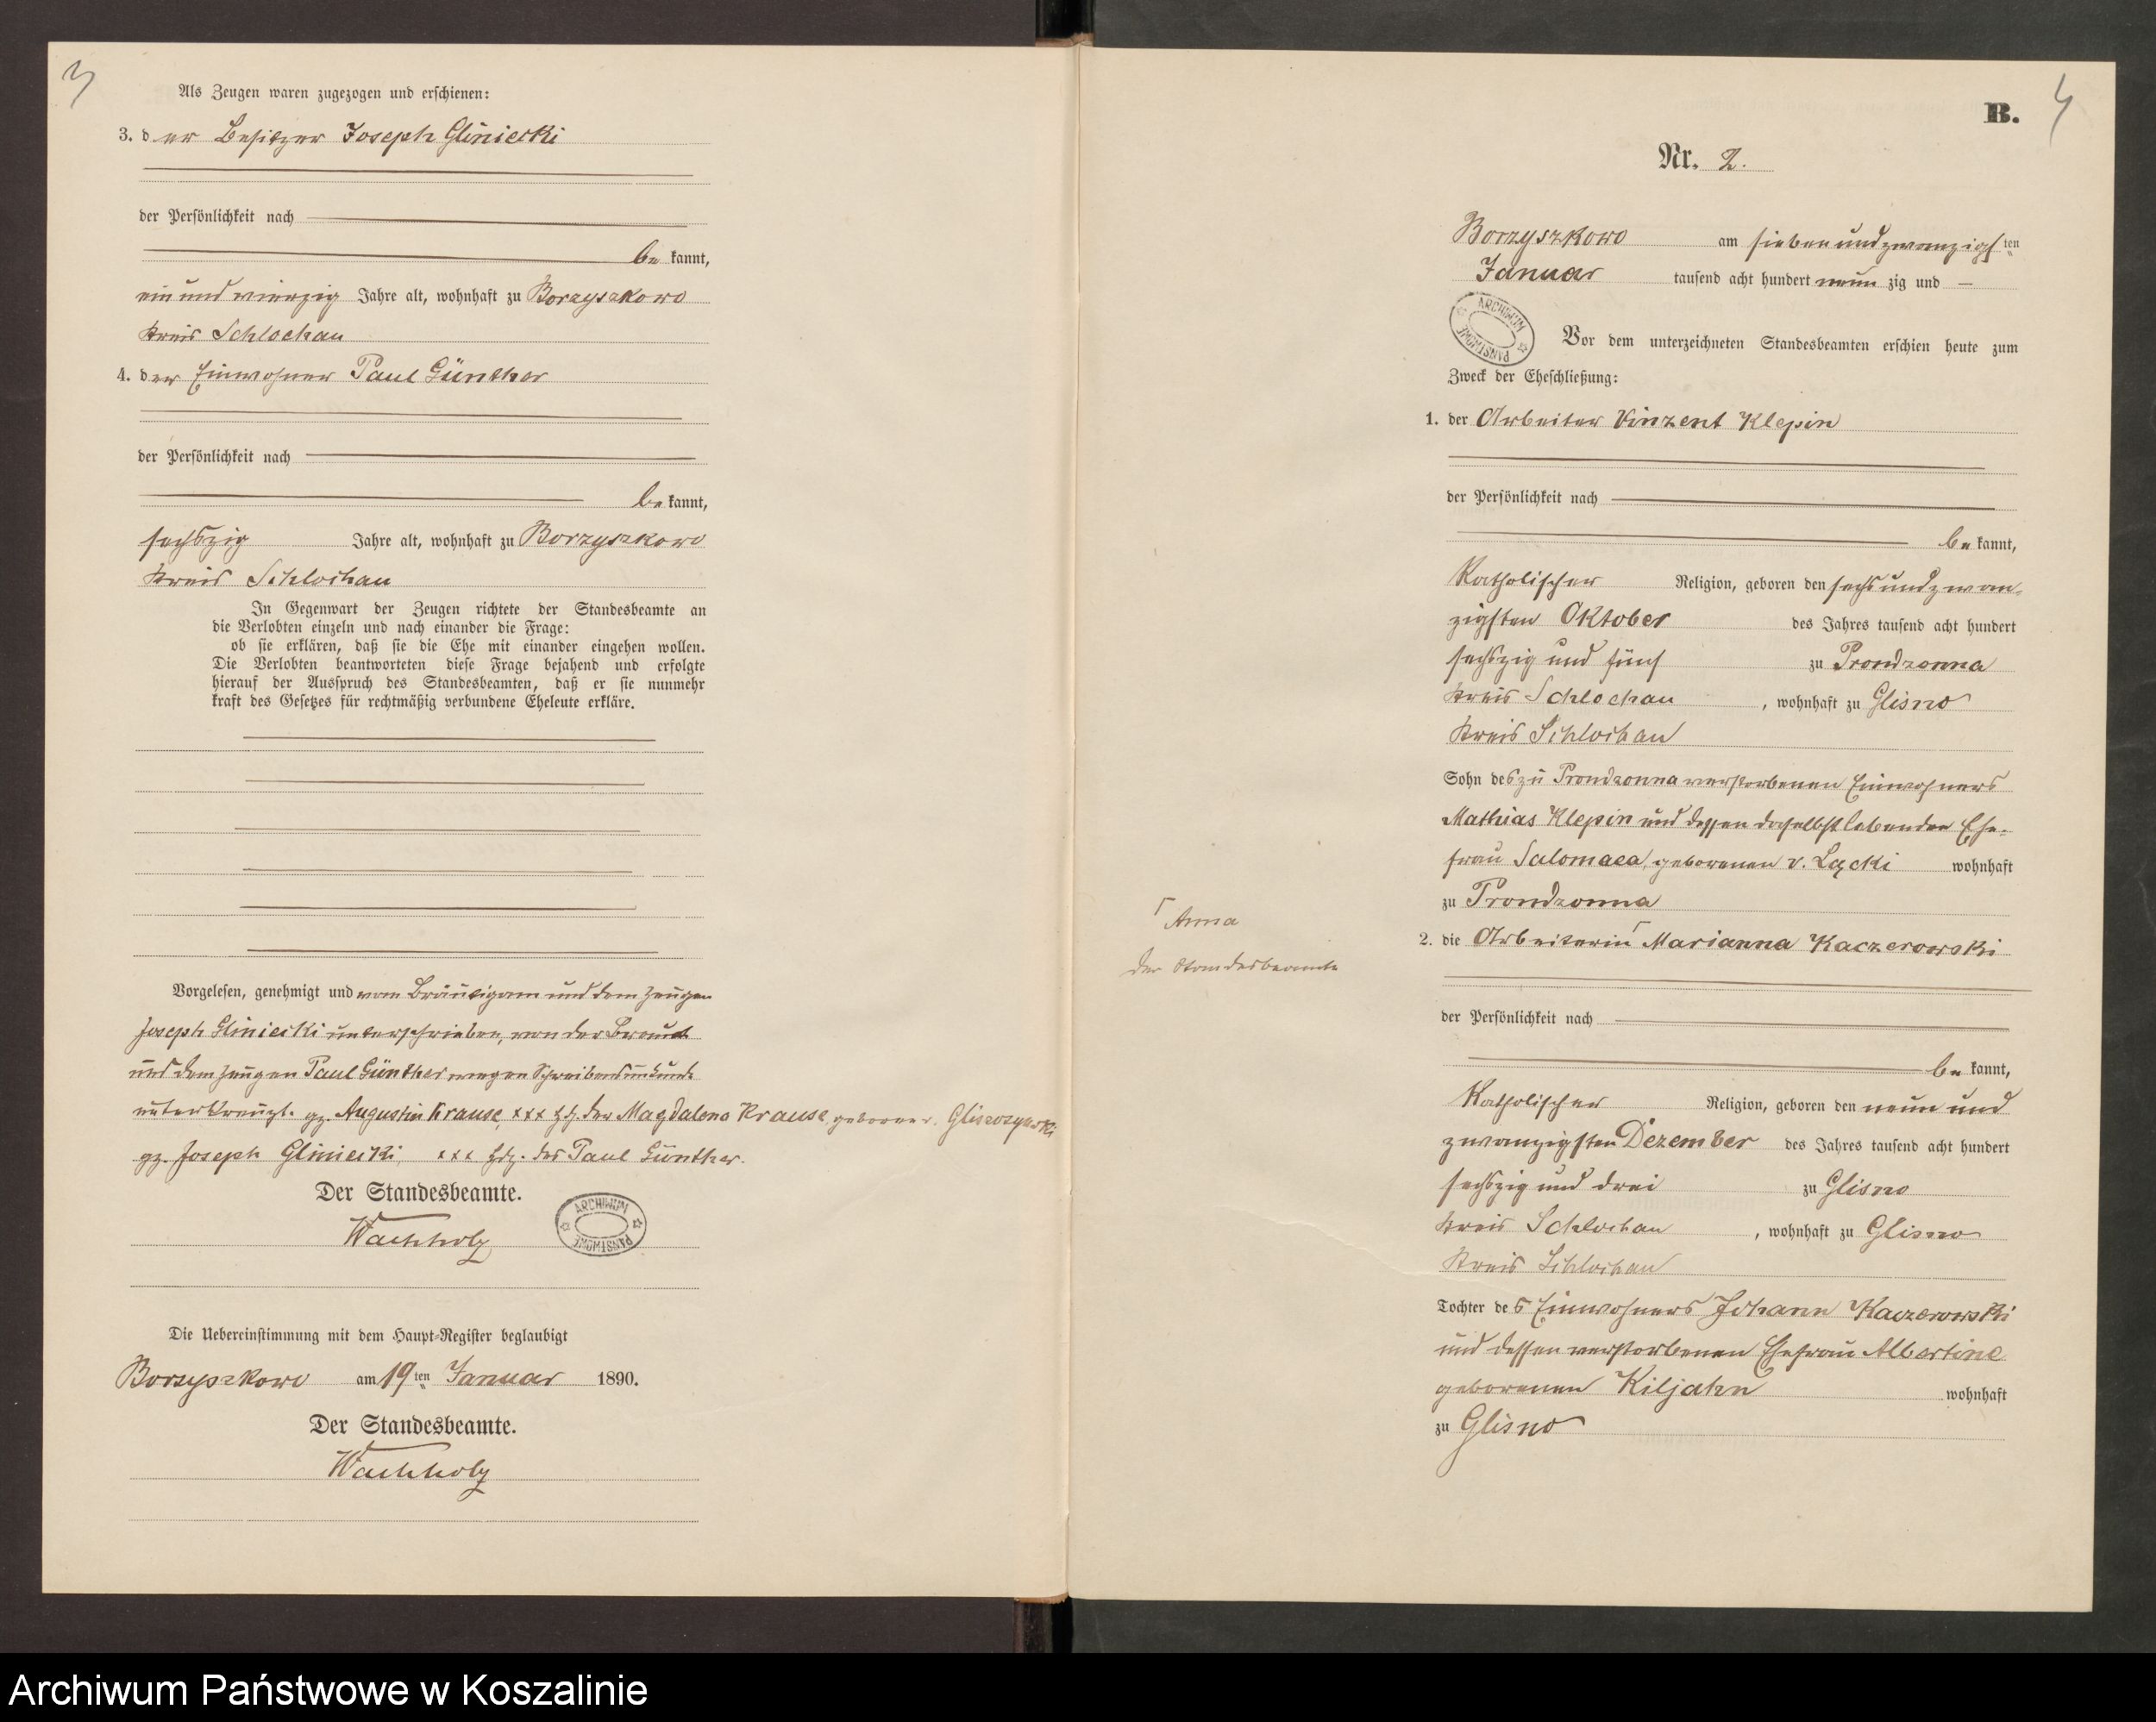 3
Als Zeugen waren zugezogen und erschienen:
3. der Besitzer Joseph Gliniecki
der Persönlichkeit nach
bekannt,
ein und vierzig Jahre alt, wohnhaft zu Borzyszkowo
Kreis Schlochau
4. der Einwohner Paul Günther
der Persönlichkeit nach
bekannt,
sechszig Jahre alt, wohnhaft zu Borzyszkowo
Kreis Schlochau
In Gegenwart der Zeugen richtete der Standesbeamte an
die Verlobten einzeln und nach einander die Frage:
ob sie erklären, daß sie die Ehe mit einander eingehen wollen.
Die Verlobten beantworteten diese Frage bejahend und erfolgte
hierauf der Ausspruch des Standesbeamten, daß er sie nunmehr
kraft des Gesetzes für rechtmäßig verbundene Eheleute erkläre.
Vorgelesen, genehmigt und vom Bräutigam und dem Zeugen
Joseph Gliniecki unterschrieben, von der Braut
und dem Zeugen Paul Günther wegen Schreibensunkunde
unterkreuzt. gz. Augustin Krause, xxx Hdz. der Magdalena Krause, geborene
gz. Joseph Gliniecki, xxx Hdz. des Paul Günther.
Der Standesbeamte.
Wachholz
ARCHIWUM PAŃSTWOWE
Die Uebereinstimmung mit dem Haupt-Register beglaubigt
Borzyszkowo am 19ten Januar 1890.
Der Standesbeamte.
Wachholz
4
B.
Nr. 2.
Borzyszkowo am sieben und zwanzigsten
Januar tausend acht hundert neunzig und —
ARCHIWUM PAŃSTWOWE
Vor dem unterzeichneten Standesbeamten erschien heute zum
Zweck der Eheschließung:
1. der Arbeiter Vinzent Klepin
der Persönlichkeit nach
bekannt,
Katholischer Religion, geboren den sechs und zwan-
zigsten Oktober des Jahres tausend acht hundert
sechszig und fünf zu Prondzonna
Kreis Schlochau, wohnhaft zu Glisno
Kreis Schlochau
Sohn des zu Prondzonna verstorbenen Einwohners
Mathias Klepin und dessen daselbst lebenden Ehe-
frau Salomaea, geborenen v. Łącki wohnhaft
zu Prondzonna
Γ Anna
Der Standesbeamte
2. die Arbeiterin Γ Marianna Kaczerowski
der Persönlichkeit nach
bekannt,
Katholischer Religion, geboren den neun und
zwanzigsten Dezember des Jahres tausend acht hundert
sechszig und drei zu Glisno
Kreis Schlochau, wohnhaft zu Glisno
Kreis Schlochau
Tochter des Einwohners Johann Kaczerowski
und dessen verstorbenen Ehefrau Albertine
geborenen Kiljahn wohnhaft
zu Glisno
Archiwum Państwowe w Koszalinie